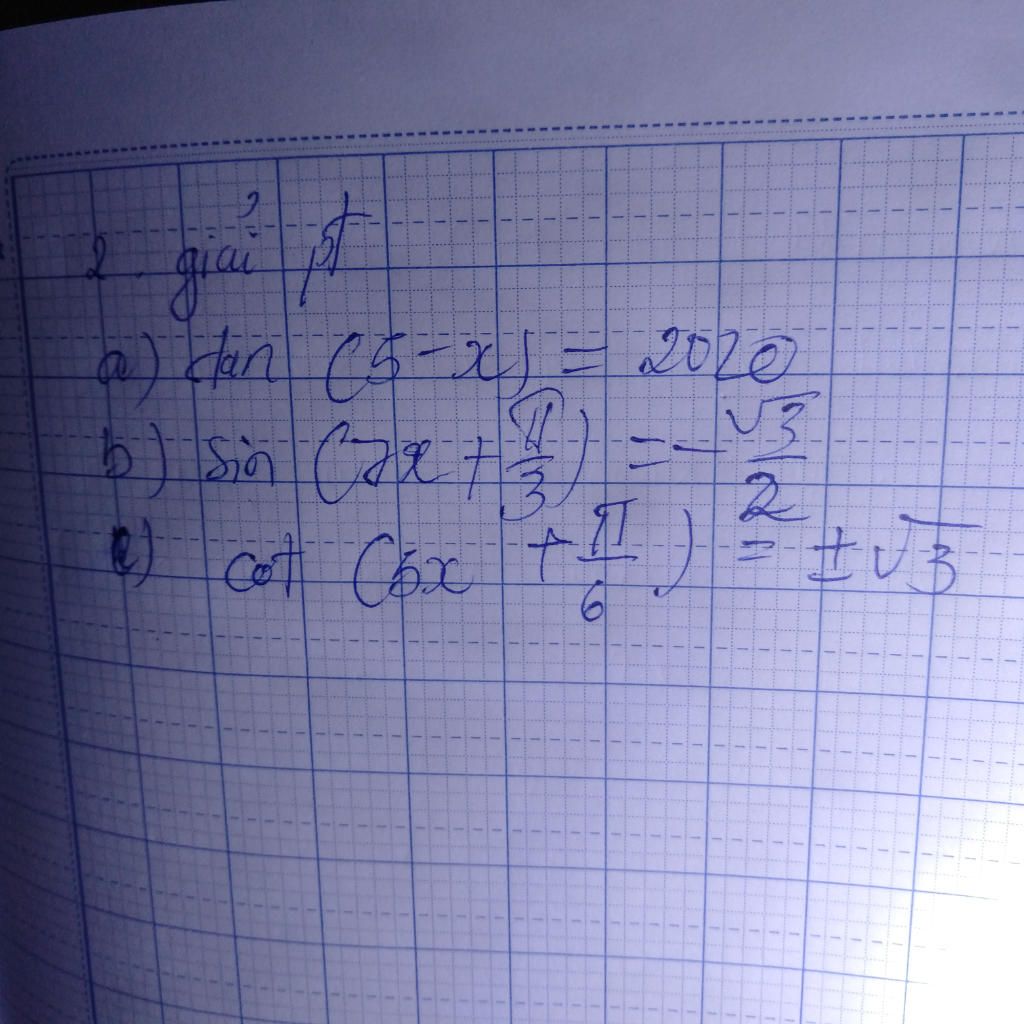 2. giải pt
a) tan (5-x) = 2020
b) sin (7x + π/3) = -√3/2
c) cot (5x + π/6) = ±√3